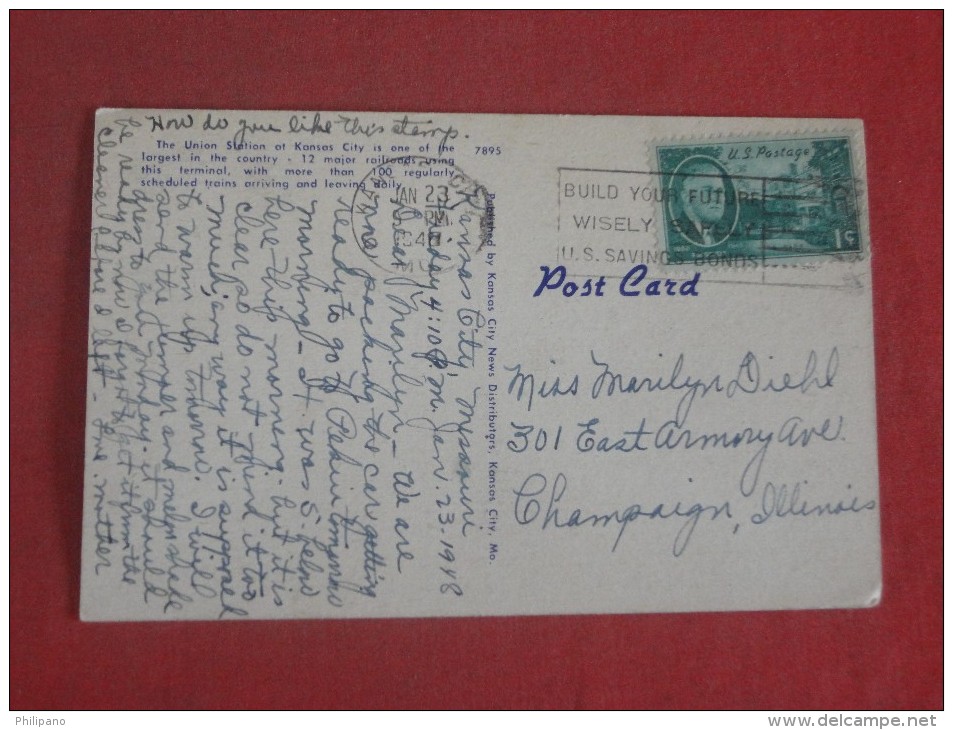 How do you like this stamp.
The Union Station at Kansas City is one of the
largest in the country - 12 major railroads using
this terminal, with more than 100 regularly
scheduled trains arriving and leaving daily.
7895
JAN 23
PM
1948
MO.
BUILD YOUR FUTURE
WISELY SAFELY
U.S. SAVINGS BONDS
U.S. Postage
1¢
Published by Kansas City News Distributors, Kansas City, Mo.
Post Card
Kansas City, Missouri
Friday 4:10 P.M. Jan. 23-1948
Dear Marilyn - We are
now packing the car getting
ready to go to Pekin tomorrow
morning - It was 5 below
here this morning but it is
clear so do not mind it too
much, any way it is supposed
to warm up tomorrow. I will
send the temper and melon shade
dress to you Monday. it should
be ready by now I forgot to get it from the
cleaners before I left - Love. mother
Miss Marilyn Diehl
301 East Armory Ave.
Champaign, Illinois
Philipano
www.delcampe.net